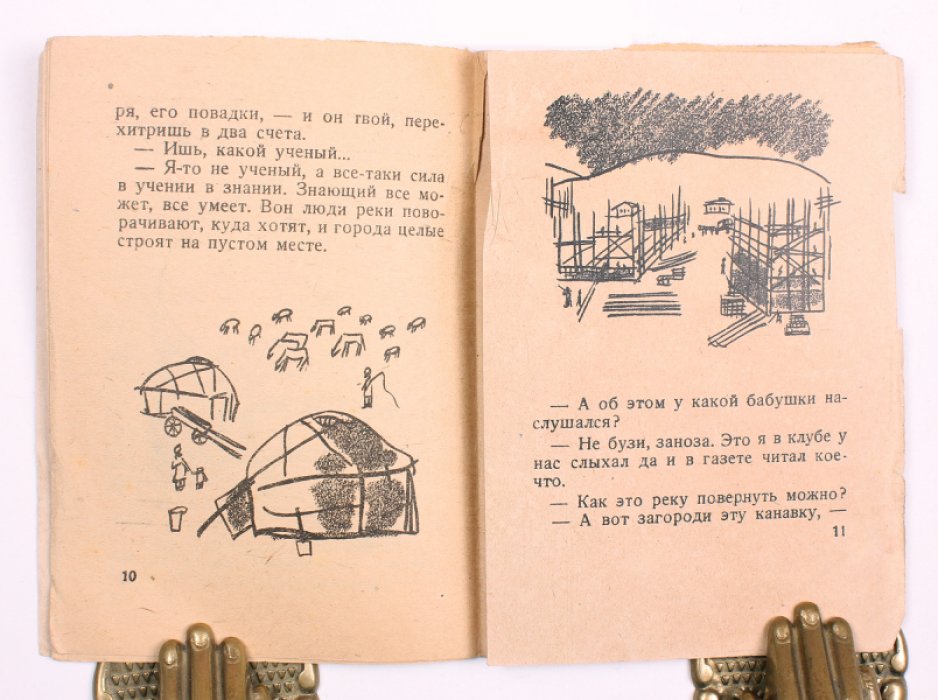 ря, его повадки, — и он твой, пере-
хитришь в два счета.
— Ишь, какой ученый...
— Я-то не ученый, а все-таки сила
в учении в знании. Знающий все мо-
жет, все умеет. Вон люди реки пово-
рачивают, куда хотят, и города целые
строят на пустом месте.
10
— А об этом у какой бабушки на-
слушался?
— Не бузи, заноза. Это я в клубе у
нас слыхал да и в газете читал кое-
что.
— Как это реку повернуть можно?
— А вот загороди эту канавку, —
11